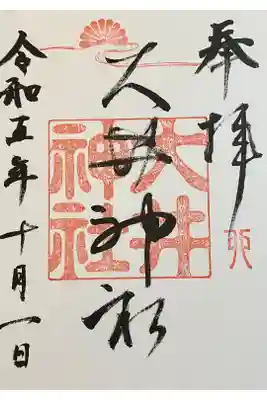 奉拝
大井神社
大井神社
令和五年十月一日